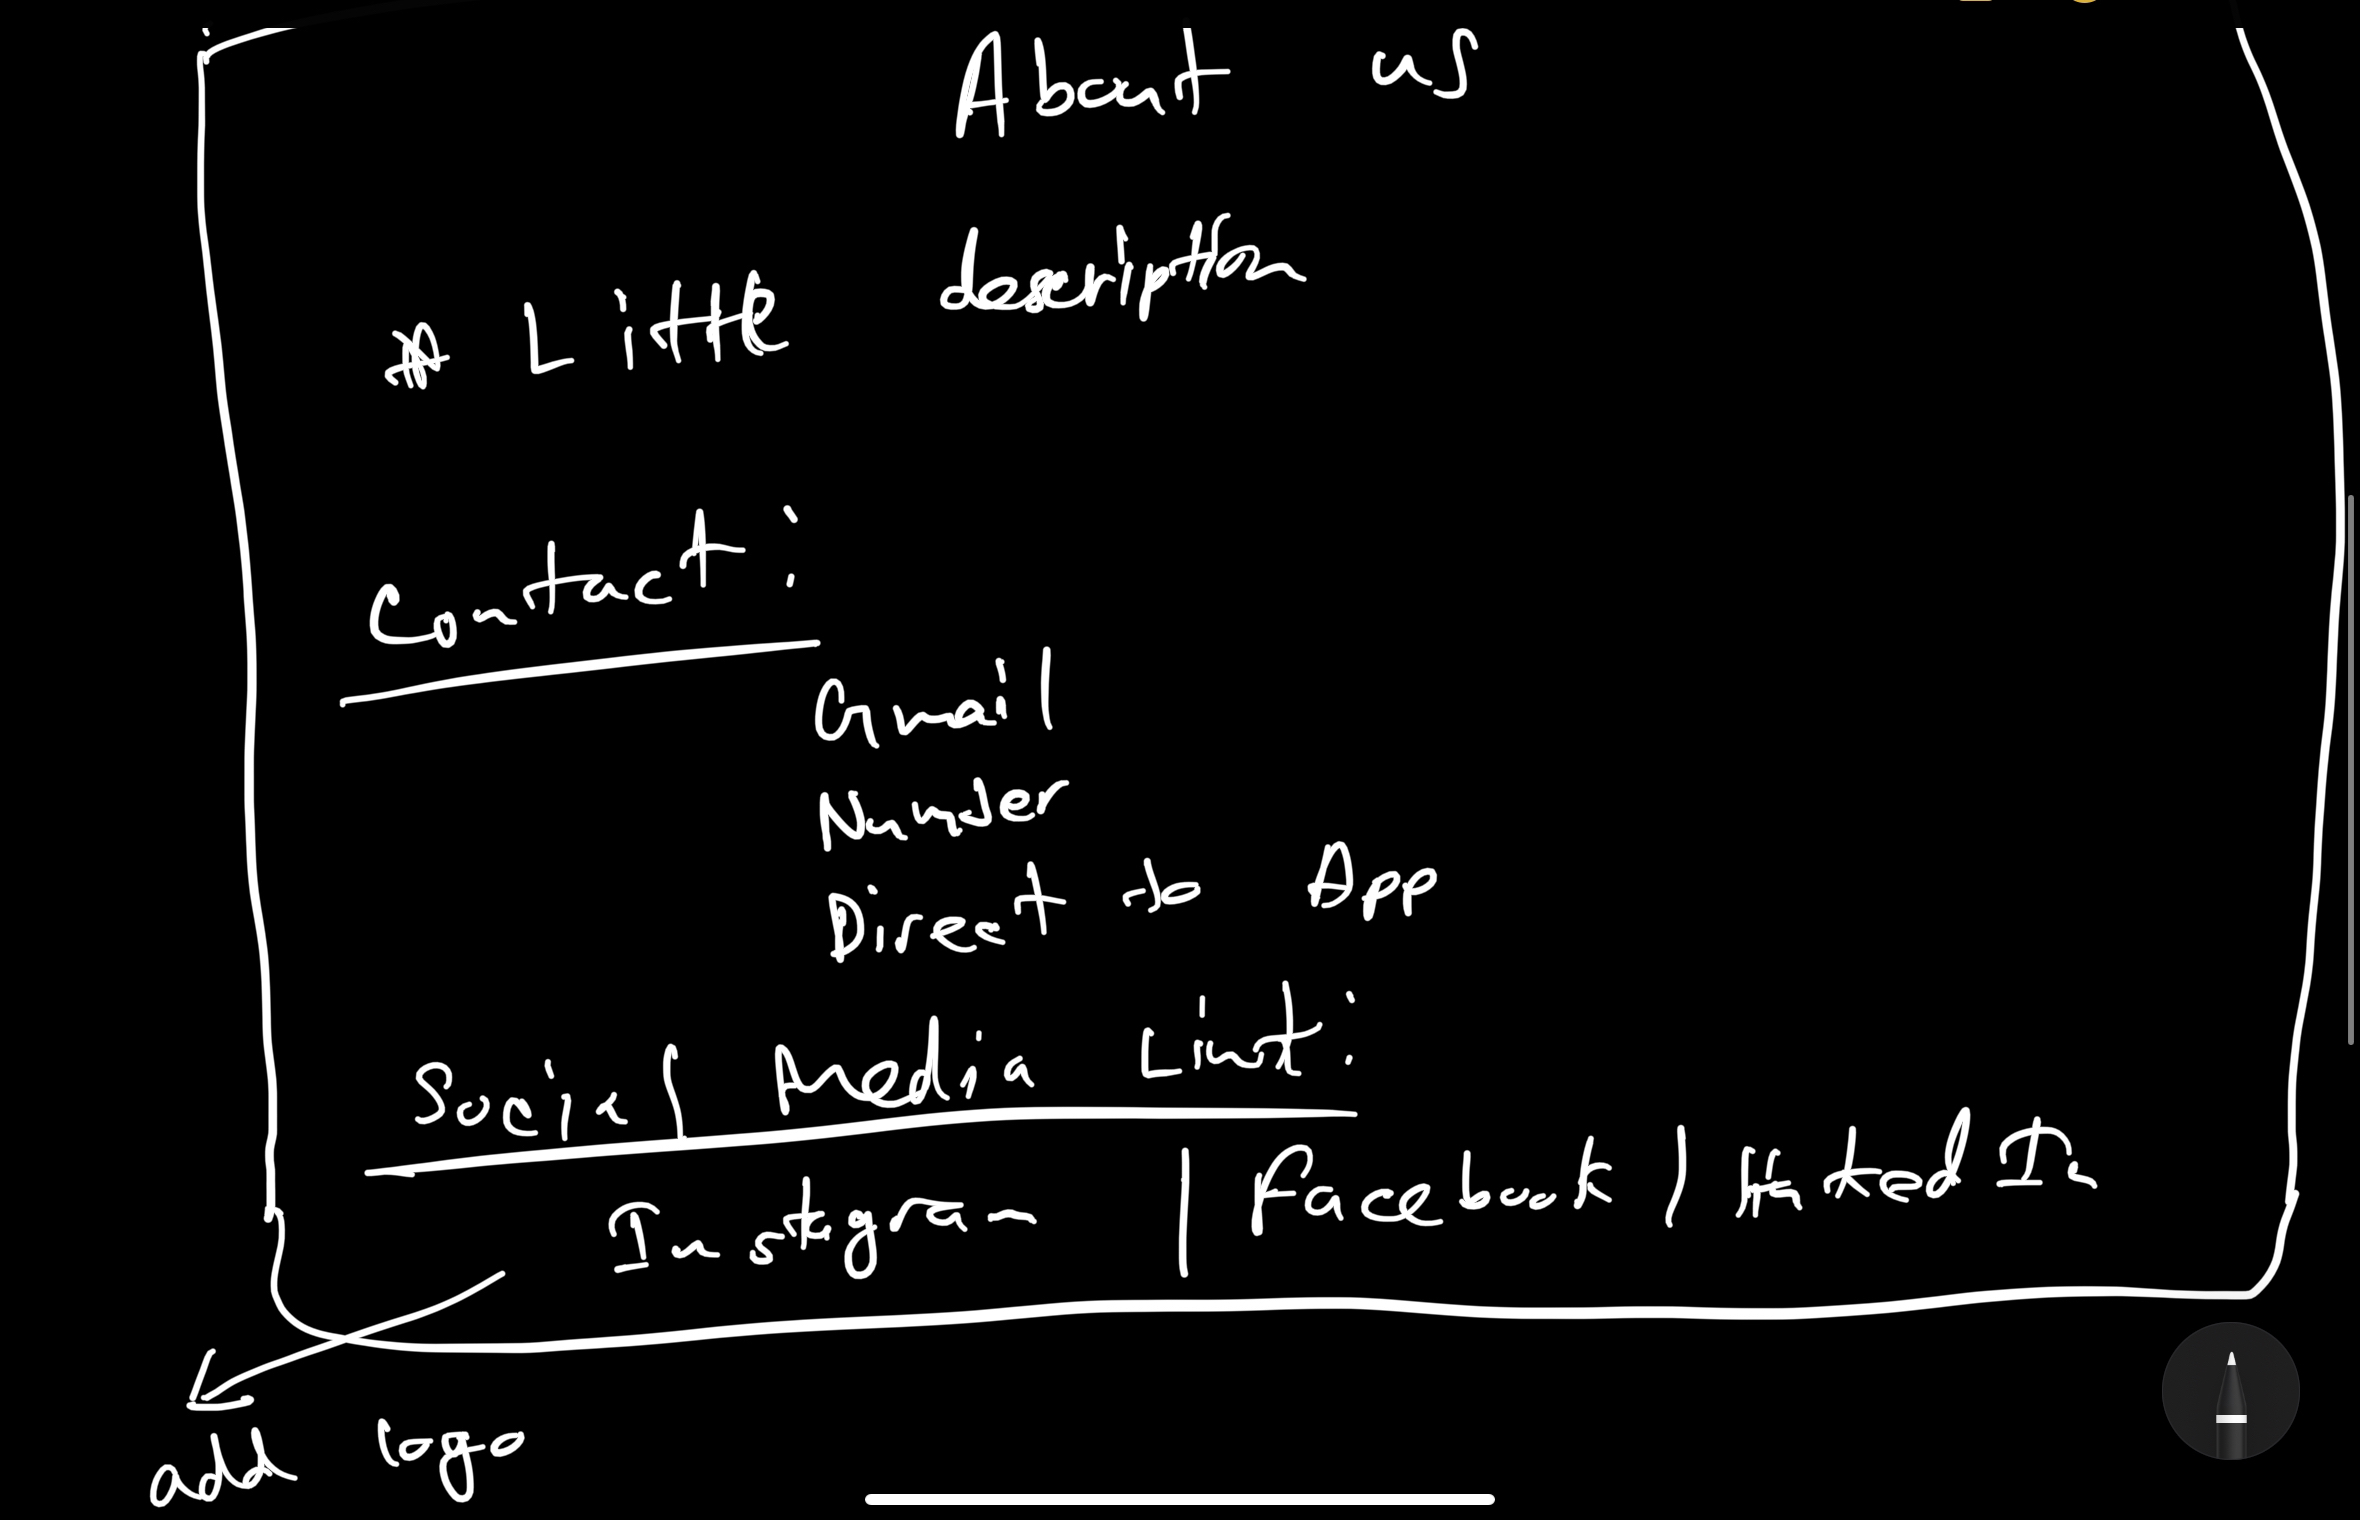 About us
* Little description
Contact:
Gmail
Number
Direct to App
Social Media Link:
Instagram | Facebook | Linked In
add logo